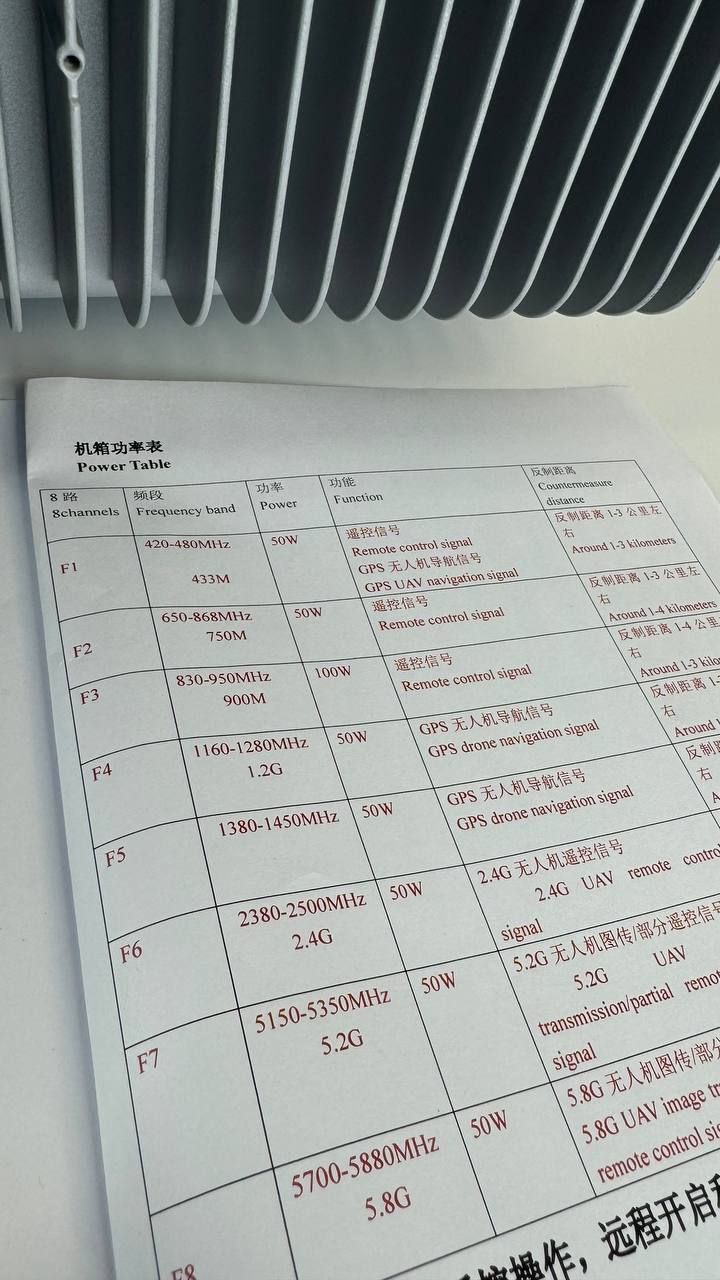 机箱功率表
Power Table
8 路
8channels
频段
Frequency band
功率
Power
功能
Function
反制距离
Countermeasure
distance
F1
420-480MHz
433M
50W
遥控信号
Remote control signal
GPS 无人机导航信号
GPS UAV navigation signal
反制距离 1-3 公里左
右
Around 1-3 kilometers
F2
650-868MHz
750M
50W
遥控信号
Remote control signal
反制距离 1-3 公里左
右
Around 1-4 kilometers
F3
830-950MHz
900M
100W
遥控信号
Remote control signal
反制距离 1-4 公里
右
Around 1-3
F4
1160-1280MHz
1.2G
50W
GPS 无人机导航信号
GPS drone navigation signal
反制距离
右
Around
F5
1380-1450MHz
50W
GPS 无人机导航信号
GPS drone navigation signal
右
F6
2380-2500MHz
2.4G
50W
2.4G 无人机遥控信号
2.4G UAV remote control
signal
F7
5150-5350MHz
5.2G
50W
5.2G 无人机图传/部分遥控信号
5.2G UAV
transmission/partial
signal
F8
5700-5880MHz
5.8G
50W
5.8G 无人机图传/部分
5.8G UAV image
remote control
操作，远程开启